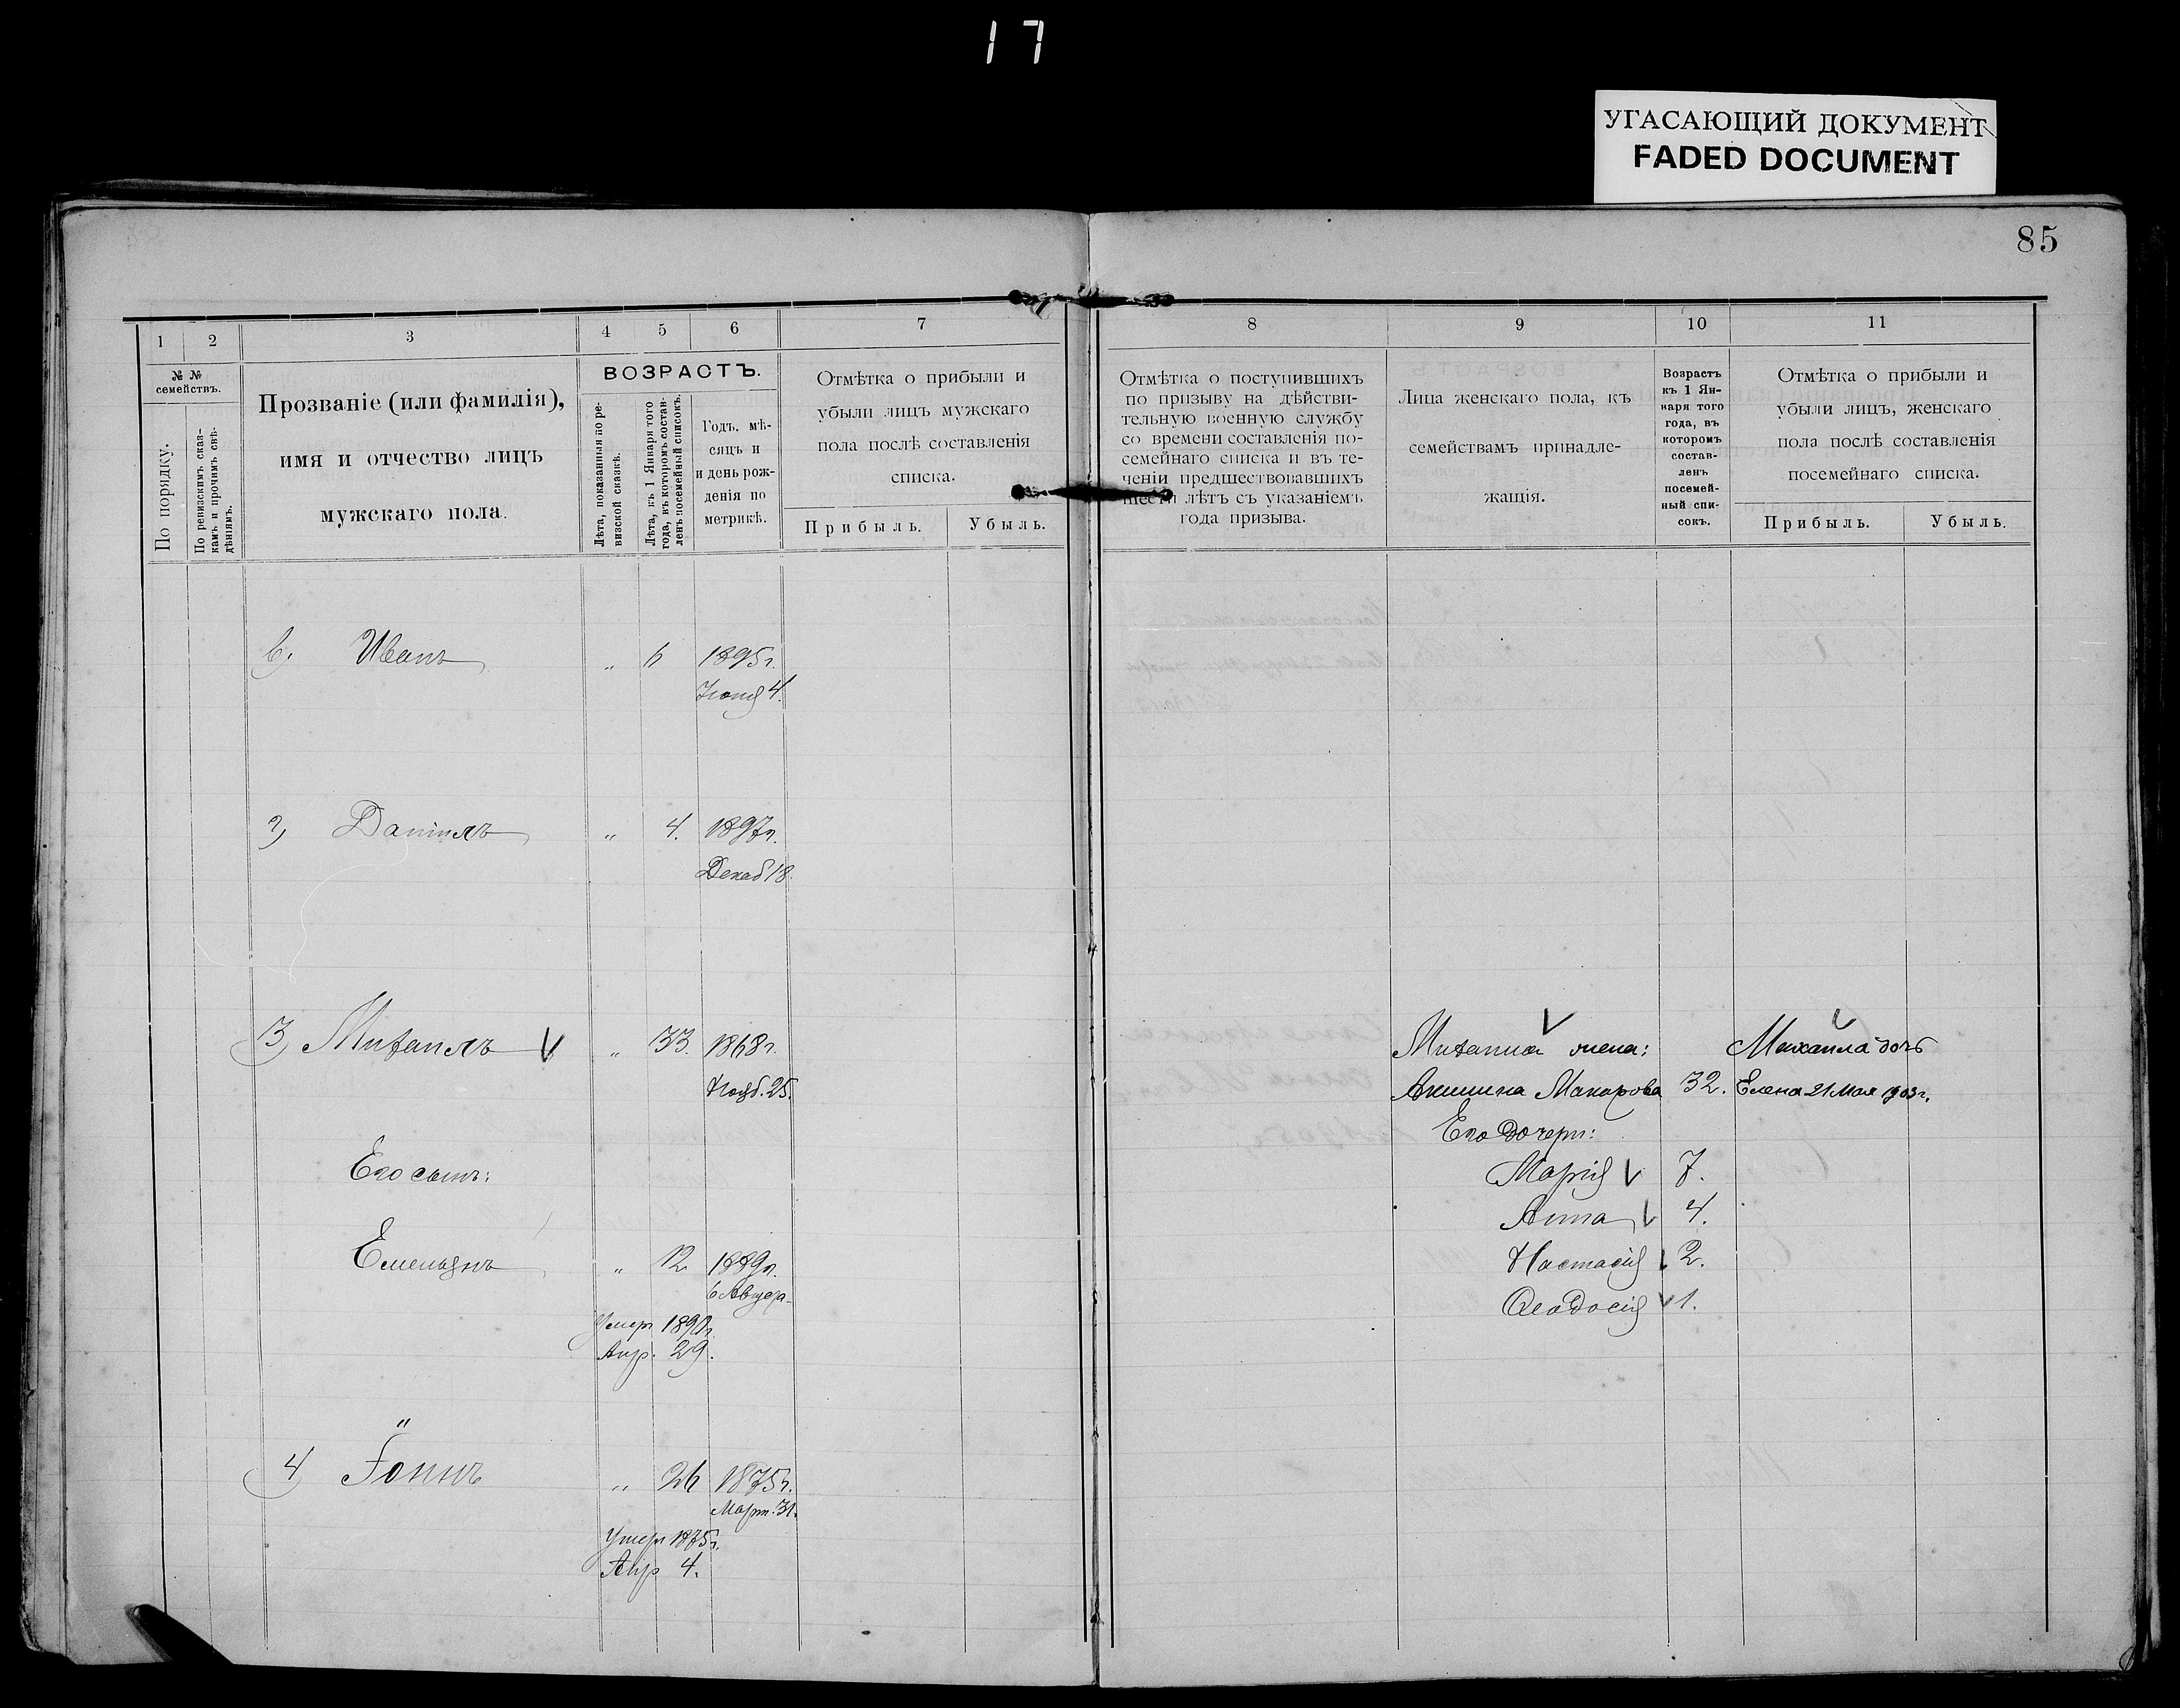 17
УГАСАЮЩИЙ ДОКУМЕНТ
FADED DOCUMENT
85
1 2 3 4 5 6 7
№ № семействъ.
По порядку.
По ревизскимъ сказкамъ и прочимъ свѣдѣніямъ.
Прозваніе (или фамилія),
имя и отчество лицъ
мужскаго пола.
ВОЗРАСТЪ.
Лѣта, показанныя по ревизской сказкѣ.
Лѣта, къ 1 Января того года, въ которомъ составленъ посемейный списокъ.
Годъ, мѣ-
сяцъ и
и день рож-
денія по
метрикѣ.
Отмѣтка о прибыли и
убыли лицъ мужскаго
пола послѣ составленія
списка.
Прибыль. Убыль.
в. Иванъ " 6 1895г.
Іюня 4.
г) Даніилъ " 4. 1897г.
Декаб 18
3) Михаилъ V " 33. 1868г.
Нояб. 25.
Его сынъ:
Емельянъ " 12 1889г.
Умеръ
Апр. 29.
"
4) Іоннъ " 26 1875г.
Март. 31.
Умеръ 1875г.
Апр 4.
8 9 10 11
Отмѣтка о поступившихъ
по призыву на дѣйстви-
тельную военную службу
со времени составленія по-
семейнаго списка и въ те-
ченіи предшествовавшихъ
шести лѣтъ съ указаніемъ
года призыва.
Лица женскаго пола, къ
семействамъ принадле-
жащія.
Возрастъ
къ 1 Ян-
варя того
года, въ
которомъ
состав-
ленъ
посемей-
ный спи-
сокъ.
Отмѣтка о прибыли и
убыли лицъ, женскаго
пола послѣ составленія
посемейнаго списка.
Прибыль. Убыль.
V V
Михаила жена: Михаила дочь
Акилина Макарова 32. Елена 21 Мая 1903г.
Его дочери:
Марія V 7.
Анна V 4.
Настасія V 2.
Ѳеодосія V 1.